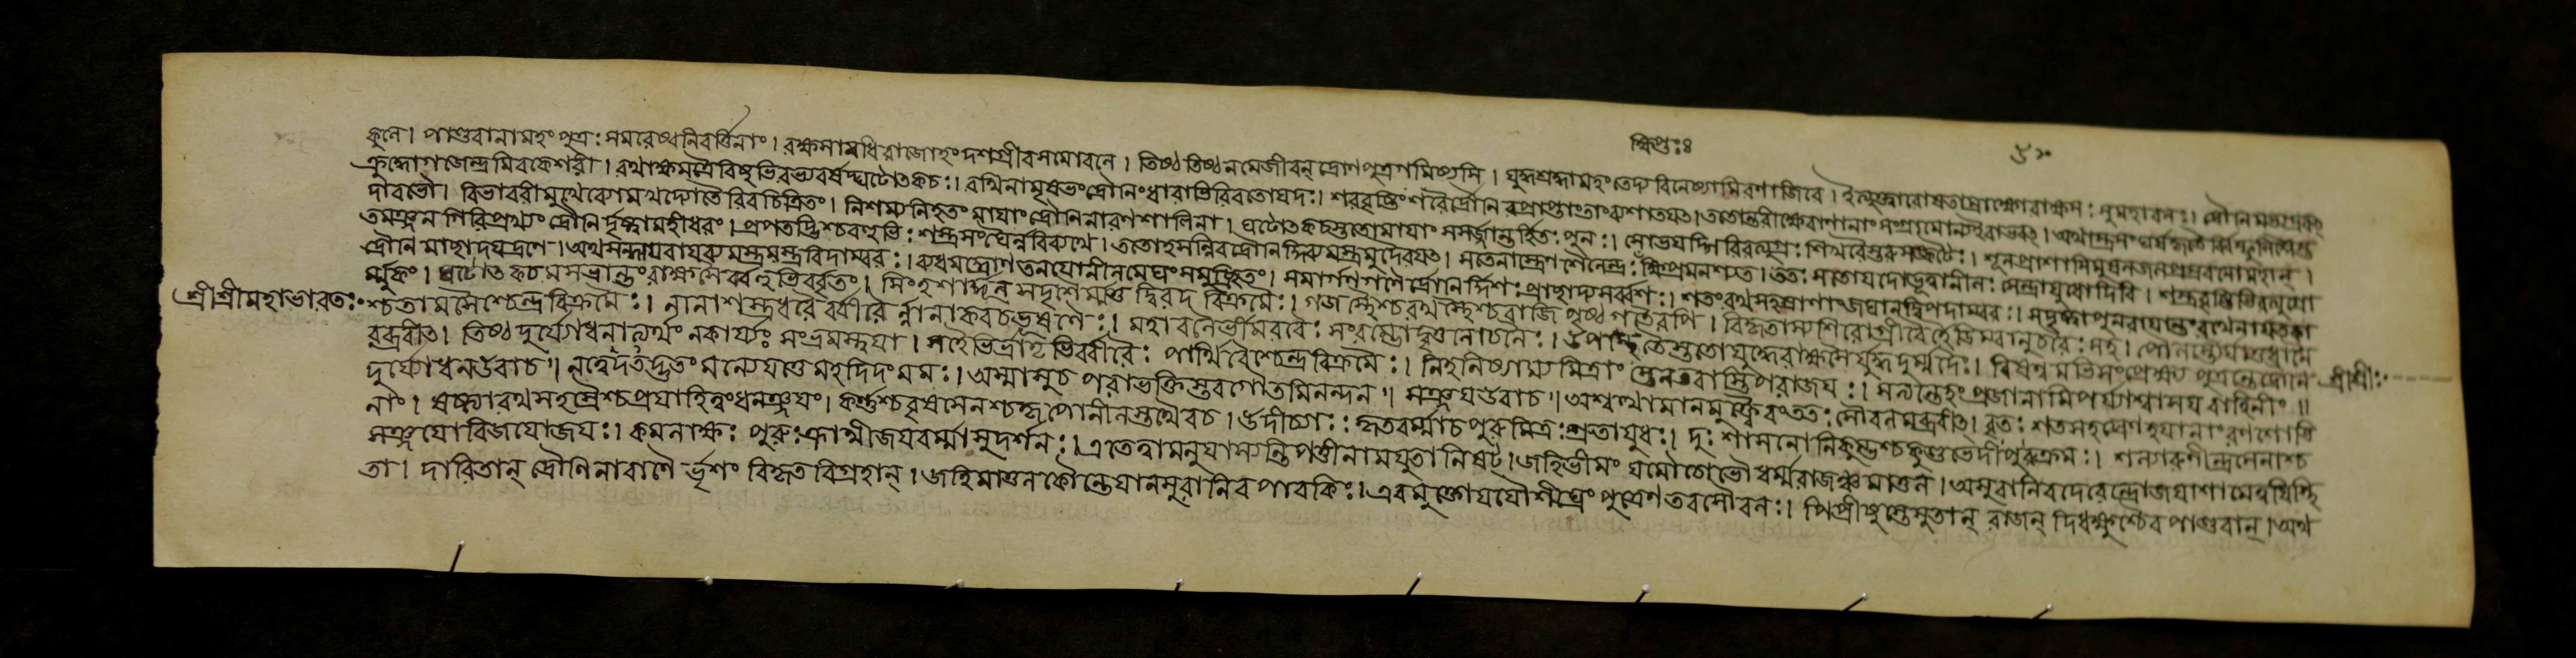 ক্ষিপ্তঃ ৪
কুলে। পাণ্ডবানামহং পুত্রঃ সমরেষ্বনিবর্ত্তিনাং। রক্ষসামধিরাজোহং দশগ্রীবসমোবলে। তিষ্ঠ তিষ্ঠ নমেজীবন্ দ্রোণপুত্রগমিষ্যসি। যুদ্ধশ্রদ্ধামহং তেদ্য বিনেষ্যামি রণাজিরে। ইত্যুক্ত্বারোষতাম্রাক্ষোরাক্ষসঃ সুমহাবলঃ। দ্রৌণিমভ্যদ্রবৎ
ক্রুদ্ধোগজেন্দ্রমিবকেশরী। রথাক্ষমাত্রৈরিষুভিরভ্যবর্ষদ্ঘটোৎকচঃ। রথিনামৃষভংদ্রৌণিংধারাভিরিবতোযদঃ। শরবৃষ্টিংশরৈর্দ্রৌণিরপ্রাপ্তাংতাংব্যশাতযৎ। ততোন্তরীক্ষেবাণানাং সংগ্রামোন্যইবাভবৎ। অথাস্ত্রসংঘর্ষকৃতৈর্বিস্ফুলিঙ্গৈস্ত
দাবভৌ। বিভাবরীমুখেব্যোমখদ্যোতৈরিবচিত্রিতং। নিশম্যনিহতংমাযাংদ্রৌণিনারণশালিনা। ঘটোৎকচস্ততোমাযাং সসর্জ্জান্তর্হিতঃ পুনঃ। সোভবদ্গিরিরত্যুগ্রঃ শিখরৈস্তরুসঙ্কটৈঃ। শূলপ্রাসাসিমুষলজলপ্রস্রবণোমহান্।
তমঞ্জনগিরিপ্রখ্যং দ্রৌণির্দৃষ্ট্বামহীধরং। প্রপতদ্ভিশ্চবহুভিঃ শস্ত্রসংঘৈর্ন্নবিব্যথে। ততোহসন্নিবদ্রৌণির্ব্বজ্রমস্ত্রমুদৈরযৎ। সতেনাস্ত্রেণশৈলেন্দ্রঃ ক্ষিপ্তঃক্ষিপ্রমনশ্যত। ততঃ সতোযদোভূত্বানীলঃ সেন্দ্রাযুধোদিবি। অশ্মবৃষ্টিভিরত্যুগ্রো
দ্রৌণিমাচ্ছাদযদ্রণে। অথসন্ধাযবাযব্যমস্ত্রমস্ত্রবিদাম্বরঃ। ব্যধমদ্দ্রোণতনযোনীলমেঘংসমুত্থিতং। সমার্গণগণৈর্দ্রৌণির্দ্দিশঃ প্রচ্ছাদ্যসর্ব্বশঃ। শতংরথসহস্রাণাংজঘানদ্বিপদাম্বরঃ। সদৃষ্ট্বাপুনরাযান্তংরথেনাযতকা
র্ম্মুকং। ঘটোৎকচমসম্ভ্রান্তংরাক্ষসৈর্ব্বহুভির্বৃতং। সিংহশার্দ্দূলসদৃশৈর্ম্মত্তদ্বিরদবিক্রমৈঃ। গজস্থৈশ্চরথস্থৈশ্চবাজিপৃষ্ঠগতৈরপি। বিকৃতাস্যশিরোগ্রীবৈর্হৈডিম্বানুচরৈঃ সহ। পৌলস্ত্যৈর্যাতুধানৈ
শ্রীশ্রীমহাভারতঃ শ্চতামসৈশ্চেন্দ্রবিক্রমৈঃ। নানাশস্ত্রধরৈর্বীরৈর্ন্নানাকবচভূষণৈঃ। মহাবলৈর্ভীমরবৈঃ সংরম্ভোদ্বৃত্তলোচনৈঃ। উপস্থিতৈস্ততোযুদ্ধেরাক্ষসৈর্যুদ্ধদুর্ম্মদৈঃ। বিষণ্ণমভিসংপ্রেক্ষ্য পুত্রন্তেদ্রৌণি শ্রীশ্রীঃ
রব্রবীৎ। তিষ্ঠ দুর্যোধনাদ্যত্বং নকার্য্যঃ সংভ্রমস্ত্বযা। সহৈভির্ভ্রাতৃভির্বীরৈঃ পার্থিবৈশ্চেন্দ্রবিক্রমৈঃ। নিহনিষ্যাম্যমিত্রাংস্তেনতবাস্তিপরাজযঃ। সত্যন্তেহং প্রজানামিপর্য্যাশ্বাসযবাহিনীং॥
দুর্য্যোধনউবাচ॥ নত্বেদতদ্ভুতং মন্যেযত্তেমহদিদংমনঃ। অস্মাসুচ পরাভক্তিস্তবগৌতমিনন্দন॥ সঞ্জযউবাচ॥ অশ্বত্থামানমুক্ত্বৈবংততঃ সৌবলমব্রবীৎ। বৃতঃ শতসহস্রেণহযানাংরণশোভি
নাং। ষষ্ট্যারথসহস্রৈশ্চপ্রযাহিত্বংধনঞ্জযং। কর্ণশ্চবৃষসেনশ্চকৃপোনীলস্তথৈবচ। উদীচ্যাঃ কৃতবর্ম্মাচপুরুমিত্রঃ শ্রুতাযুধঃ। দুঃশাসনোনিকুম্ভশ্চকুণ্ডভেদীপুরুক্রমঃ। শল্যারুণীন্দ্রসেনাশ্চ
সঞ্জযোবিজযোজযঃ। কমলাক্ষঃ পুরুঃক্রাথীজযবর্ম্মাসুদর্শনঃ। এতেত্বামনুযাস্যন্তিপত্তীনামযুতানিষট্। জহিভীমংযমৌচোভৌধর্ম্মরাজঞ্চমাতুল। অসুরানিবদেবেন্দ্রোজযাশামেত্বযিস্থি
তা। দারিতান্ দ্রৌণিনাবাণৈর্ভৃশং বিক্ষতবিগ্রহান্। জহিমাতুলকৌন্তেযানসুরানিবপাবকিঃ। এবমুক্তোযযৌশীঘ্রংপুত্রেণতবসৌবলঃ। পিপ্রীষুস্তেসুতান্ রাজন্ দিধক্ষুশ্চৈবপাণ্ডবান্। অথ